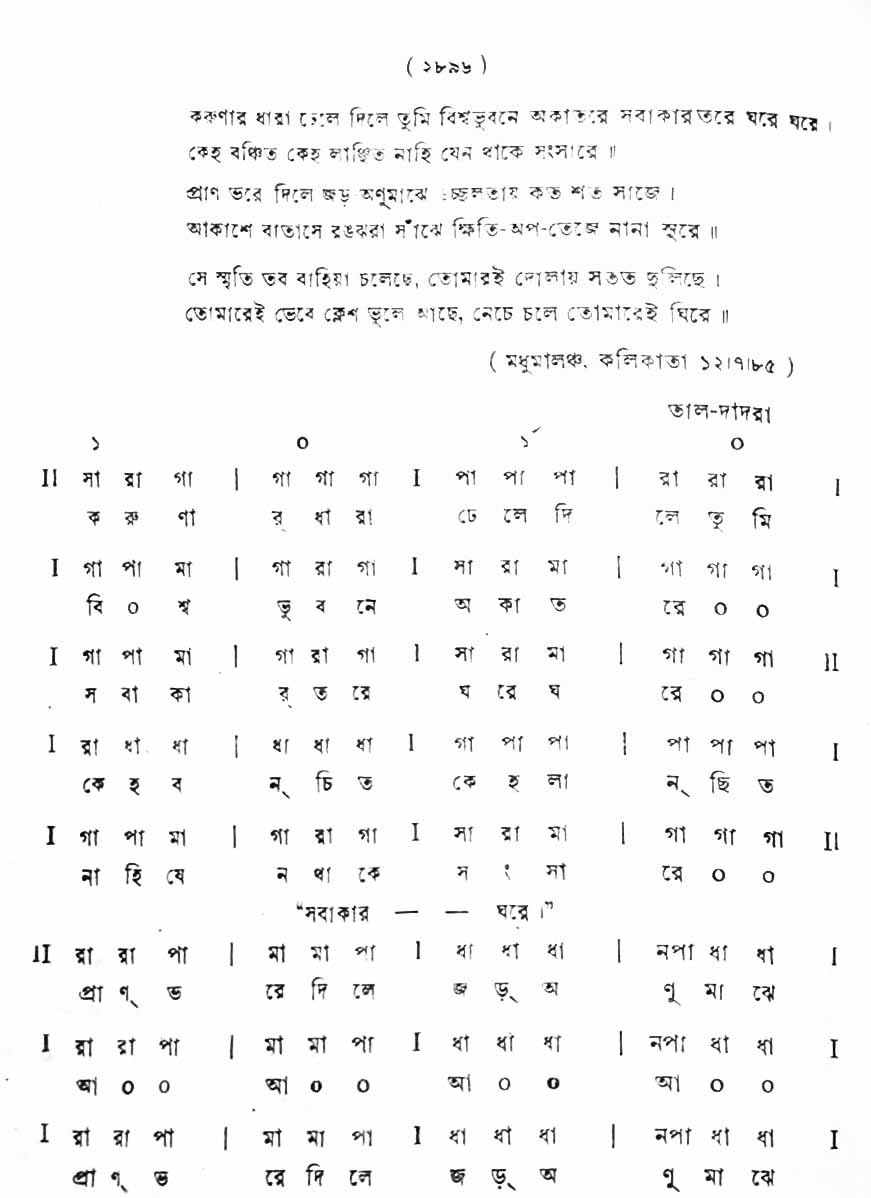 ( ২৮৯৬ )
করুণার ধারা ঢেলে দিলে তুমি বিশ্বভুবনে অকাতরে সবাকারতরে ঘরে ঘরে ।
কেহ বঞ্চিত কেহ লাঞ্ছিত নাহি যেন থাকে সংসারে ॥
প্রাণ ভরে দিলে জড় অণুমাঝে উচ্ছলতায় কত শত সাজে ।
আকাশে বাতাসে রঙঝরা সাঁঝে ক্ষিতি-অপ-তেজে নানা সুরে ॥
সে স্মৃতি তব বাহিয়া চলেছে, তোমারই দোলায় সতত দুলিছে ।
তোমারেই ভেবে ক্লেশ ভুলে আছে, নেচে চলে তোমারেই ঘিরে ॥
( মধুমালঞ্চ, কলিকাতা ১২।৭।৮৫ )
তাল-দাদরা
১ ০ ১´ ০
II সা রা গা | গা গা গা I পা পা পা | রা রা রা I
ক রু ণা র্ ধা রা ঢে লে দি লে তু মি
I গা পা মা | গা রা গা I সা রা মা | গা গা গা I
বি ০ শ্ব ভু ব নে অ কা ত রে ০ ০
I গা পা মা | গা রা গা I সা রা মা | গা গা গা II
স বা কা র্ ত রে ঘ রে ঘ রে ০ ০
I রা ধা ধা | ধা ধা ধা I গা পা পা | পা পা পা I
কে হ ব ন্ চি ত কে হ লা ন্ ছি ত
I গা পা মা | গা রা গা I সা রা মা | গা গা গা II
না হি যে ন থা কে স ং সা রে ০ ০
“সবাকার — — ঘরে ।”
II রা রা পা | মা মা পা I ধা ধা ধা | নপা ধা ধা I
প্রা ণ্ ভ রে দি লে জ ড়্ অ ণু মা ঝে
I রা রা পা | মা মা পা I ধা ধা ধা | নপা ধা ধা I
আ ০ ০ আ ০ ০ আ ০ ০ আ ০ ০
I রা রা পা | মা মা পা I ধা ধা ধা | নপা ধা ধা I
প্রা ণ্ ভ রে দি লে জ ড়্ অ ণু মা ঝে